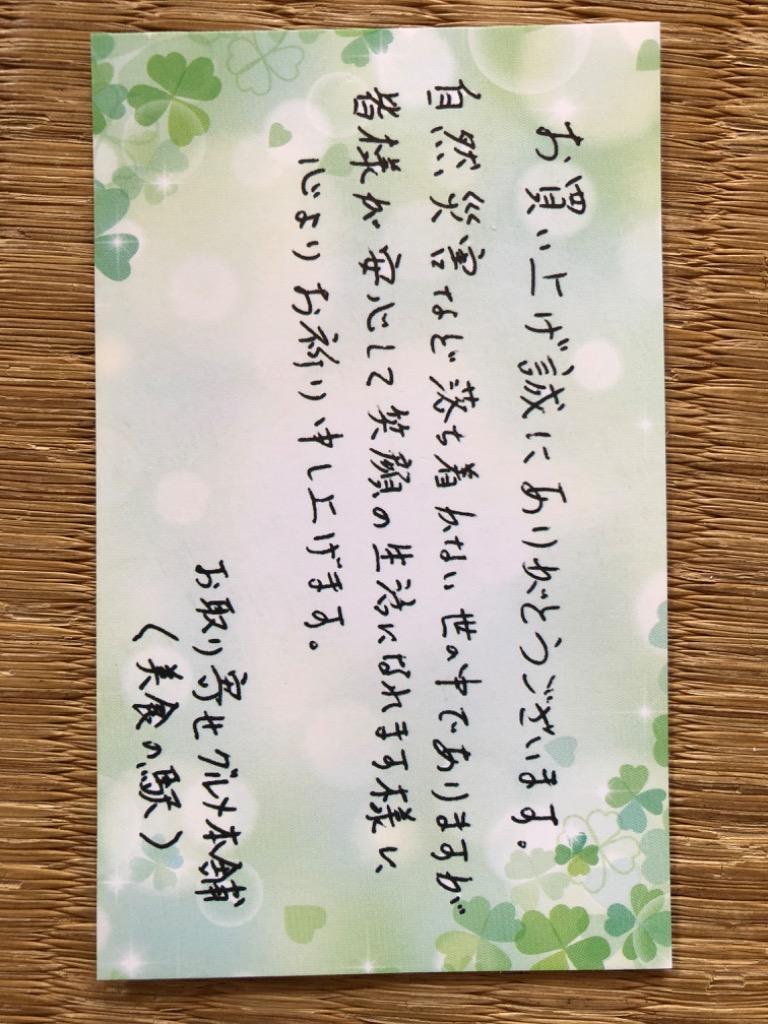 お買い上げ誠にありがとうございます。
自然災害など落ち着かない世の中でありますが
皆様が安心して笑顔の生活になれます様に
心よりお祈り申し上げます。
お取り寄せグルメ本舗
（美食の駅）